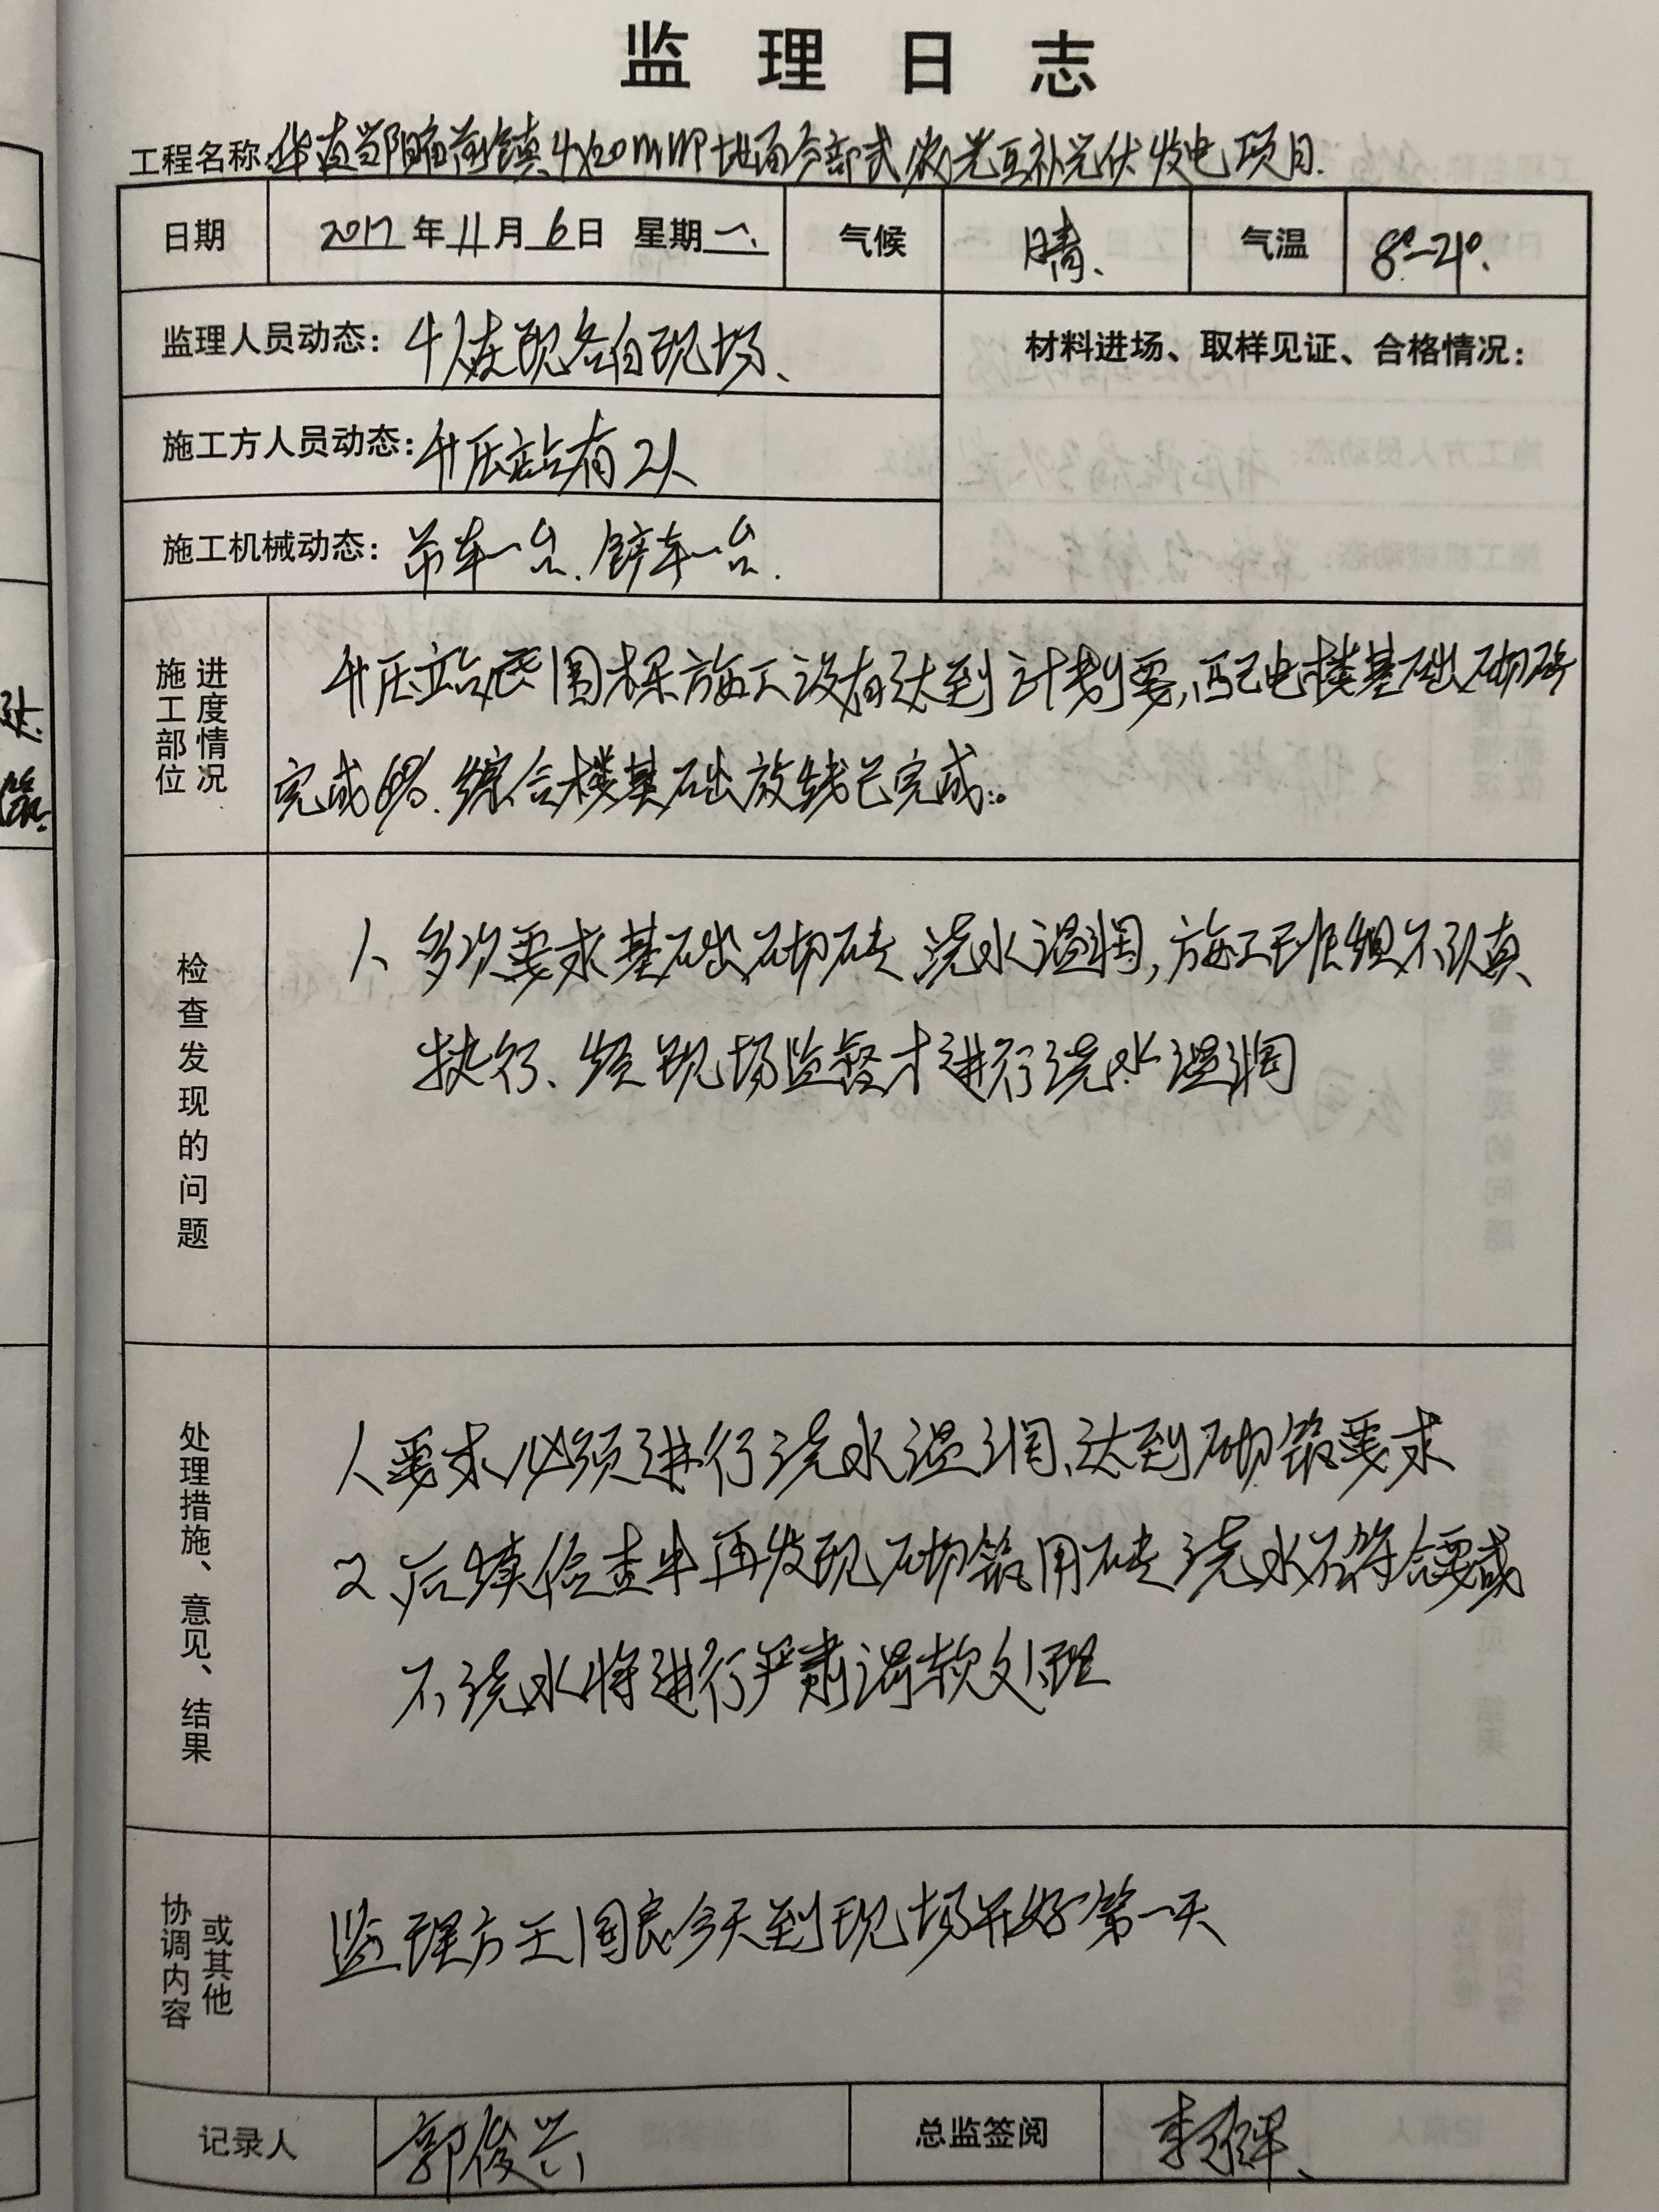 监理日志
工程名称:华直鄗阳庙前镇4x20MWP地面分部式农光互补光伏发电项目.
日期 2017年11月6日 星期一. 气候 晴、 气温 8°-21°.
监理人员动态: 4人在现各自现场、 材料进场、取样见证、合格情况:
施工方人员动态: 升压站有21人
施工机械动态: 吊车一台. 铲车一台.
施工部位 进度情况
升压站 围栏施工没有达到计划要,配电楼基础砌砖
完成 、综合楼基础放线已完成。
检查发现的问题
1、多次要求基础砌砖浇水湿润,施工班组不认真
执行、须现场监督才进行浇水湿润
处理措施、意见、结果
1要求必须进行浇水湿润、达到砌筑要求
2、后续检查中再发现砌筑用砖浇水不符合要或
不浇水将进行严肃罚款处理
协调内容 或其他
监理方王国良今天到现场并好第一天
记录人 郭俊兴 总监签阅